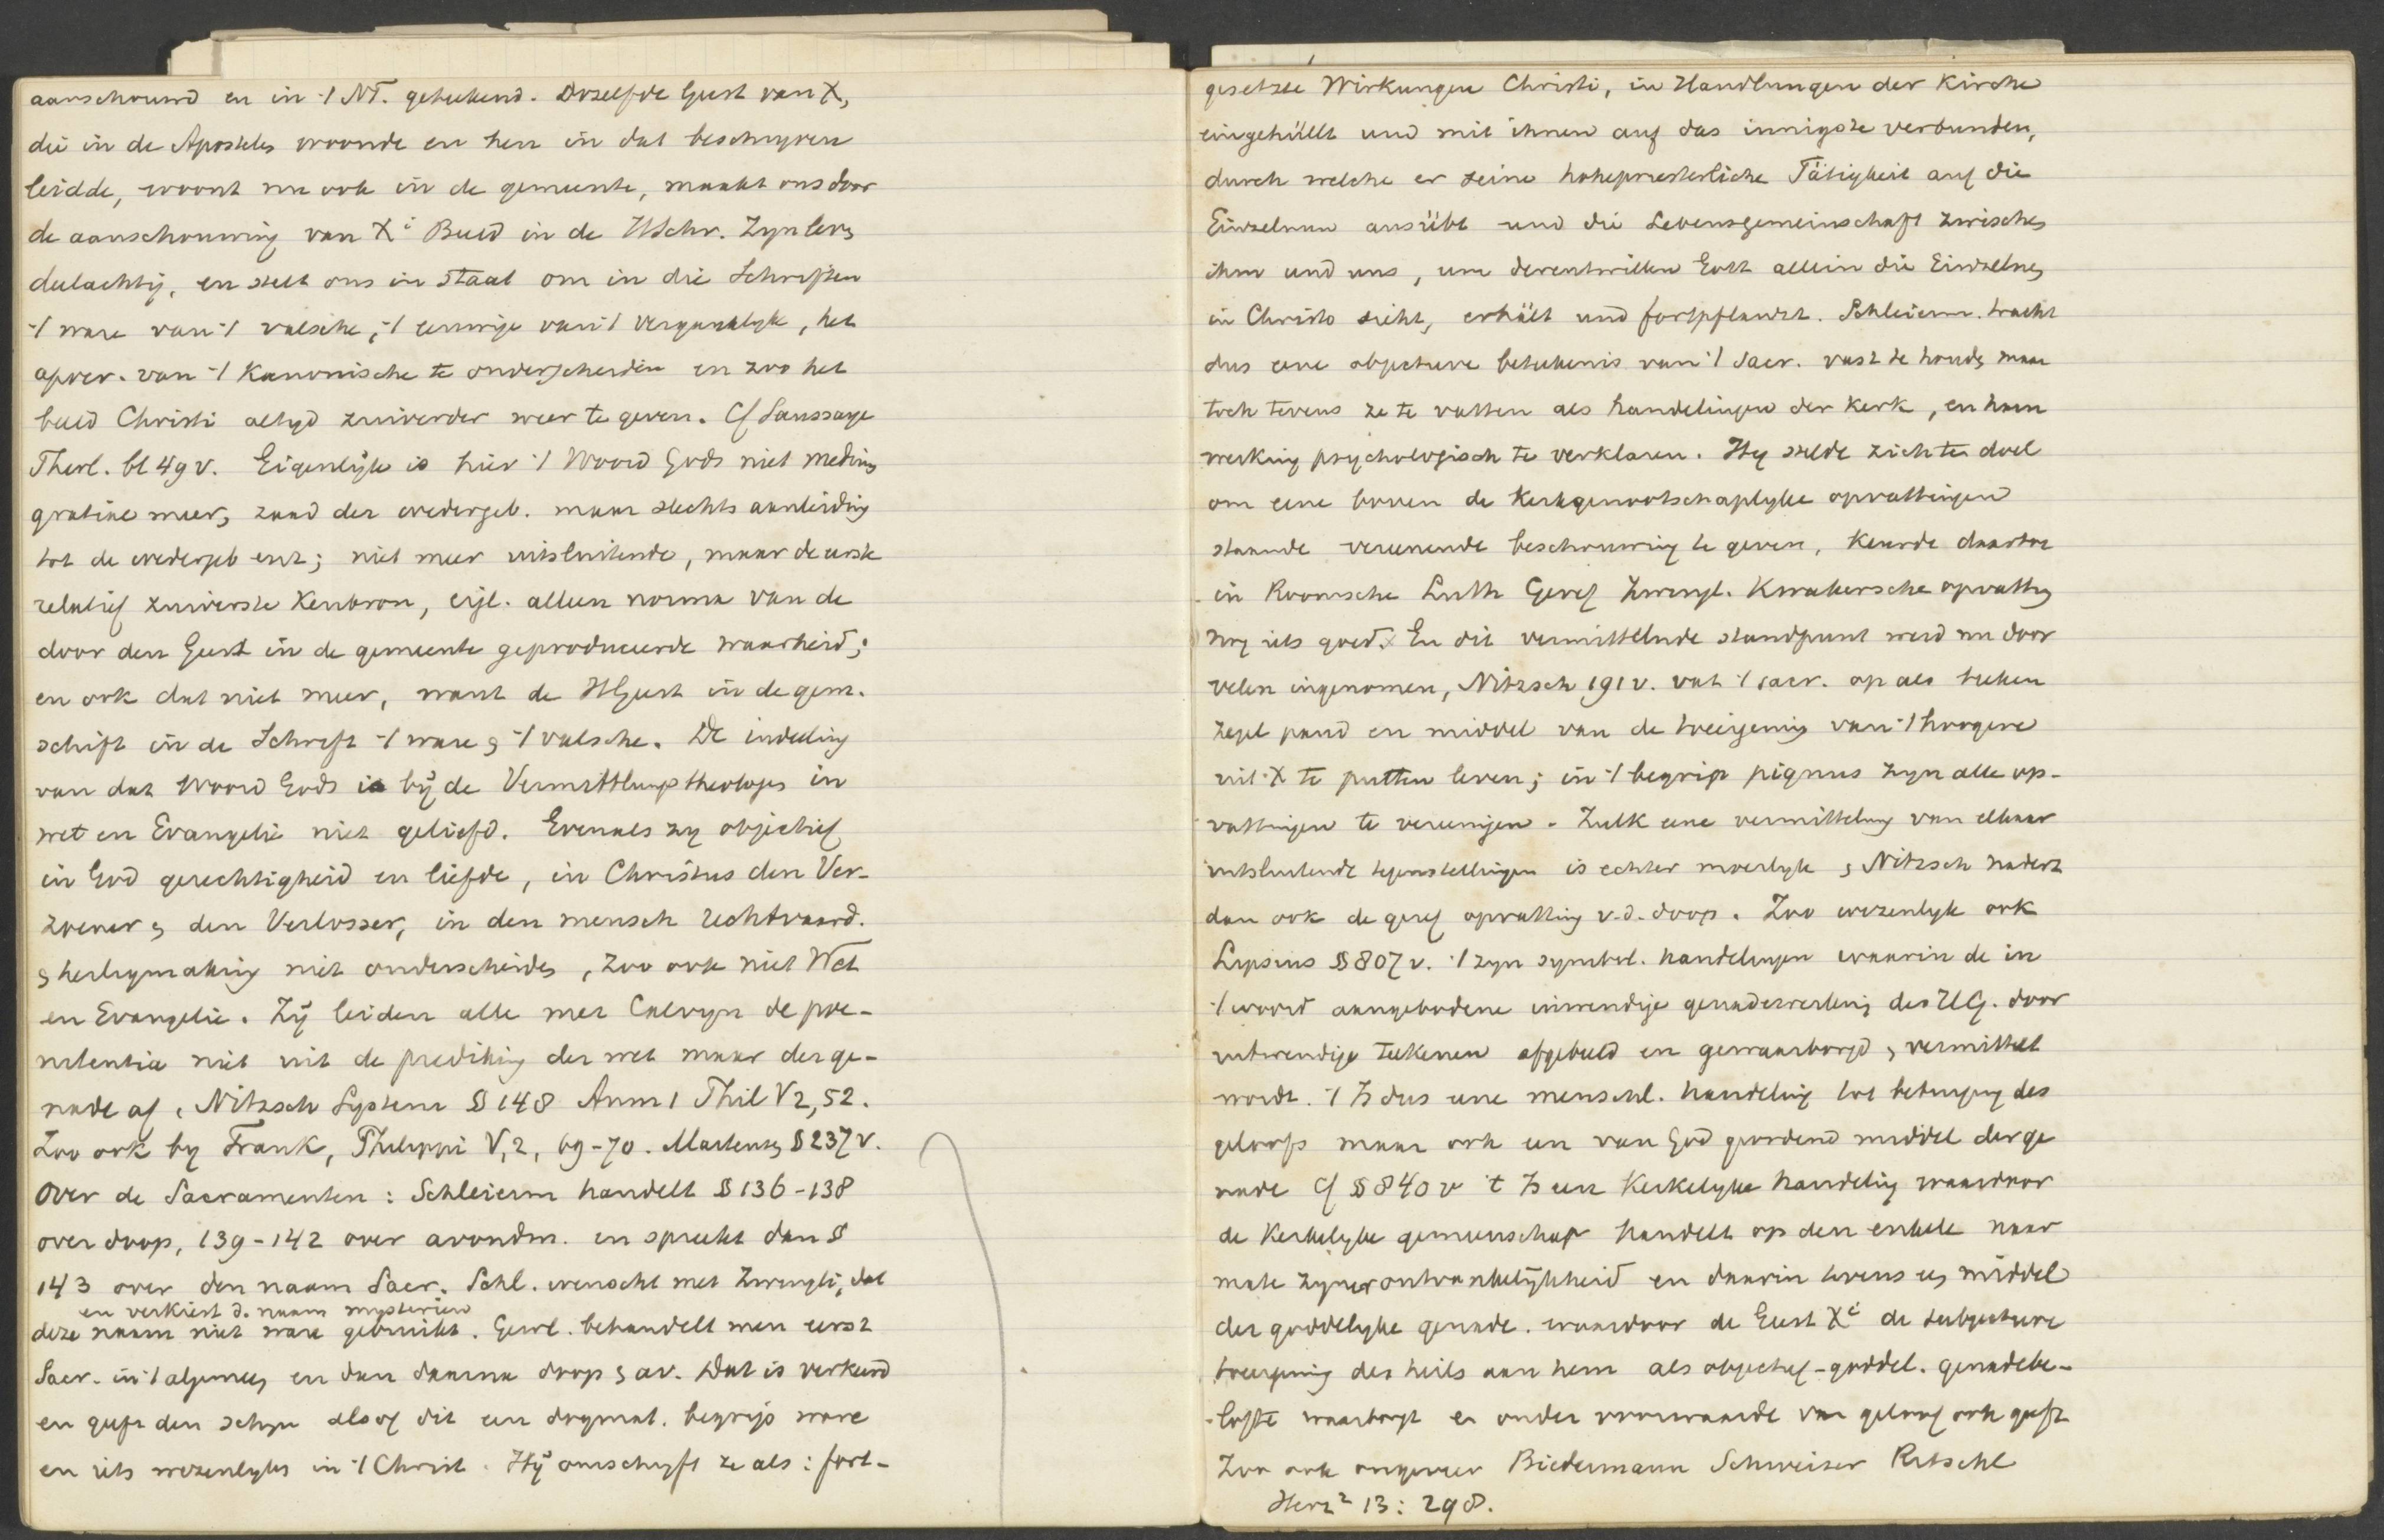 aanschouwd en in 't NT. geteekend. Dezelfde Geest van X,
die in de Apostelen woonde en hen in dat beschryven
leidde, woont nu ook in de gemeente, maakt ons door
de aanschouwing van Xi Beeld in de HSchr. Zyn leven
deelachtig, en stelt ons in staat om in die Schriften
't ware van 't valsche, 't eeuwige van 't vergankelyk, het
apocr. van 't Kanonische te onderscheiden en zoo het
beeld Christi altyd zuiverder weer te geven. Cf Saussaye
Theol. bl 49 v. Eigenlijk is hier 't Woord Gods niet medium
gratiae meer, zaad der wedergeb. maar slechts aanleiding
tot de wedergeb enz; niet meer uitsluitende, maar de eerste
relatief zuiverste Kenbron, eigl. alleen norma van de
door den Geest in de gemeente geproduceerde waarheid;
en ook dat niet meer, want de HGeest in de gem.
schift in de Schrift 't ware en 't valsche. De indeeling
van dat Woord Gods is bij de Vermittlungstheologen in
wet en Evangelie niet geliefd. Evenals zy objectief
in God gerechtigheid en liefde, in Christus den Ver-
zoener en den Verlosser, in den mensch rechtvaard.
en heiligmaking niet onderscheiden, zoo ook niet Wet
en Evangelie. Zij leiden alle met Calvyn de poe-
nitentia niet uit de prediking der wet maar der ge-
nade af, Nitzsch System § 148 Anm 1 Phil V 2, 52.
Zoo ook by Frank, Philippi V, 2, 69-70. Martensen § 237 v.
Over de Sacramenten: Schleierm handelt § 136-138
over doop, 139-142 over avondm. en spreekt dan §
143 over den naam Sacr. Schl. wenscht met Zwingli, dat
en verkiest d. naam mysterien
deze naam niet ware gebruikt. Gewl. behandelt men eerst
Sacr. in 't algemeen en dan daarna doop en av. Dat is verkeerd
en geeft den schyn alsof dit een dogmat. begrip ware
en iets wezenlyks in 't Christ. Hij omschryft ze als: fort-
gesetzte Wirkungen Christi, in Handlungen der Kirche
eingehüllt und mit ihnen auf das innigste verbunden,
durch welche er seine hohepriesterliche Tätigkeit auf die
Einzelnen ausübt und die Lebensgemeinschaft zwischen
ihm und uns, um derentwillen Gott allein die Einzelnen
in Christo sieht, erhält und fortpflanzt. Schleierm. tracht
dus eene objectieve beteekenis van 't Sacr. vast te houden maar
toch tevens ze te vatten als handelingen der Kerk, en haar
werking psychologisch te verklaren. Hy stelde zich ten doel
om eene boven de Kerkgenootschaplyke opvattingen
staande vereenende beschouwing te geven, keurde daartoe
in Roomsche Luth Geref Zwingl. Kwakersche opvatting
nog iets goed. En dit vermittelnde standpunt werd nu door
velen ingenomen, Nitzsch 191 v. vat 't sacr. op als teeken
zegel pand en middel van de toeeigening van 't hoogere
uit X te putten leven; in 't begrip pignus zyn alle op-
vattingen te vereenigen. Zulk eene vermitteling van elkaar
uitsluitende tegenstellingen is echter moeilyk, Nitzsch nadert
dan ook de geref opvatting v.d. doop. Zoo wezenlyk ook
Lipsius § 807 v. 't zyn symbol. handelingen waarin de in
't woord aangebodene inwendige genadewerking des HG. door
uitwendige teekenen afgebeeld en gewaarborgd en vermittelt
wordt. 't Is dus eene menschl. handeling tot betuiging des
geloofs maar ook een van God geordend middel der ge
nade cf § 840 v 't Is een Kerkelyke handeling waardoor
de Kerkelyke gemeenschap handelt op den enkele naar
mate zyner ontvankelijkheid en daarin tevens een middel
der goddelyke genade. waardoor de Geest Xi de subjectieve
toeeigening des heils aan hem als objectief-goddel. genadebe-
lofte waarborgt en onder voorwaarde van geloof ook geeft
Zoo ook ongeveer Biedermann Schweizer Ritschl
Herz² 13: 298.